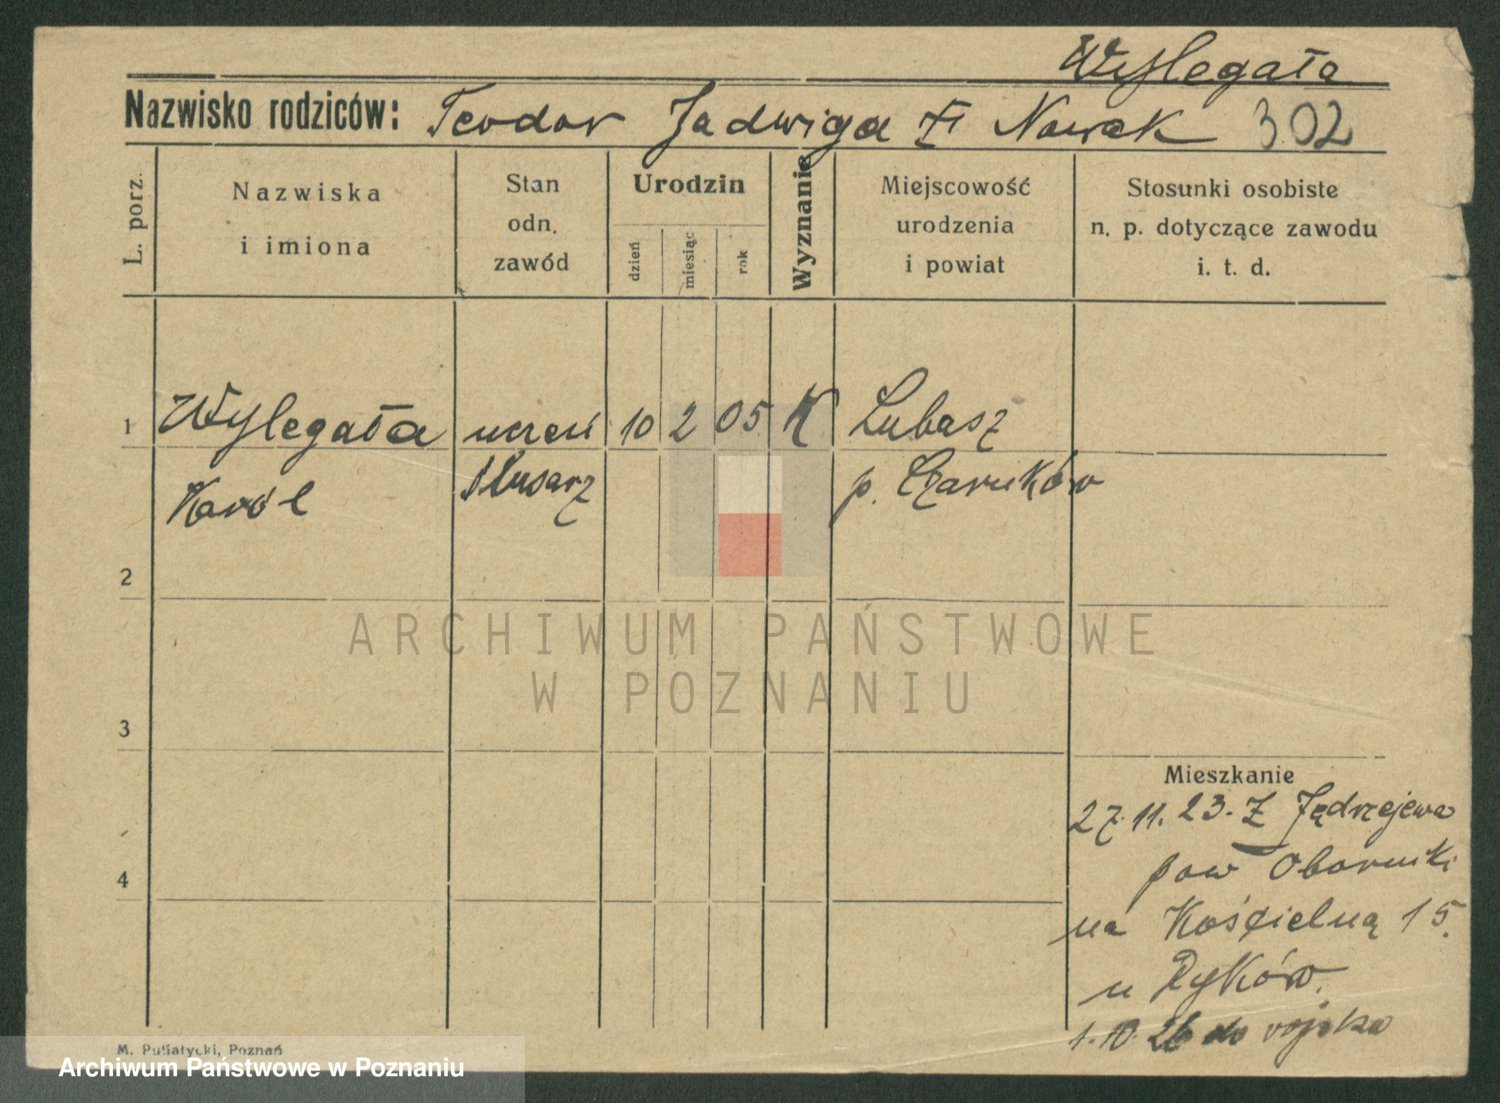 Wylegała
Nazwisko rodziców: Teodor Jadwiga z Nowak 302
L. porz.
Nazwiska
i imiona
Stan
odn.
zawód
Urodzin
dzień
miesiąc
rok
Wyznanie
Miejscowość
urodzenia
i powiat
Stosunki osobiste
n. p. dotyczące zawodu
i. t. d.
1 Wylegała uczeń 10 2 05 K Lubasz
Karól ślusarz p. Czarnków
2
3
4
ARCHIWUM PAŃSTWOWE
W POZNANIU
Mieszkanie
27.11.23. Z Jędrzejewa
pow Obornicki
na Kościelną 15.
u Ryków.
1.10.26 do wojska
M. Putiatycki, Poznań
Archiwum Państwowe w Poznaniu